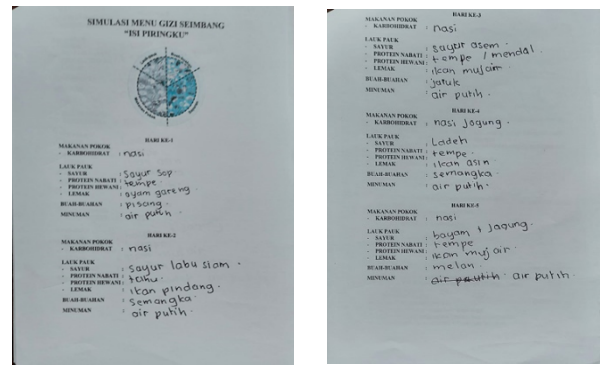 SIMULASI MENU GIZI SEIMBANG
"ISI PIRINGKU"
HARI KE-1
MAKANAN POKOK
- KARBOHIDRAT : nasi
LAUK PAUK
- SAYUR : Sayur Sop
- PROTEIN NABATI : tempe.
- PROTEIN HEWANI :
- LEMAK : ayam goreng
BUAH-BUAHAN : pisang.
MINUMAN : air putih.
HARI KE-2
MAKANAN POKOK
- KARBOHIDRAT : nasi
LAUK PAUK
- SAYUR : Sayur labu siam.
- PROTEIN NABATI : tahu.
- PROTEIN HEWANI :
- LEMAK : ikan pindang.
BUAH-BUAHAN : Semangka.
MINUMAN : air putih.
HARI KE-3
MAKANAN POKOK
- KARBOHIDRAT : nasi
LAUK PAUK
- SAYUR : Sayur asem.
- PROTEIN NABATI : tempe / mendal.
- PROTEIN HEWANI :
- LEMAK : ikan mujair.
BUAH-BUAHAN :
MINUMAN : air putih.
HARI KE-4
MAKANAN POKOK
- KARBOHIDRAT : nasi jagung.
LAUK PAUK
- SAYUR : Ladeh
- PROTEIN NABATI : tempe.
- PROTEIN HEWANI :
- LEMAK : ikan asin.
BUAH-BUAHAN : Semangka.
MINUMAN : air putih.
HARI KE-5
MAKANAN POKOK
- KARBOHIDRAT : nasi
LAUK PAUK
- SAYUR : bayam + Jagung.
- PROTEIN NABATI : tempe.
- PROTEIN HEWANI :
- LEMAK : ikan mujair.
BUAH-BUAHAN : melon.
MINUMAN : air putih.